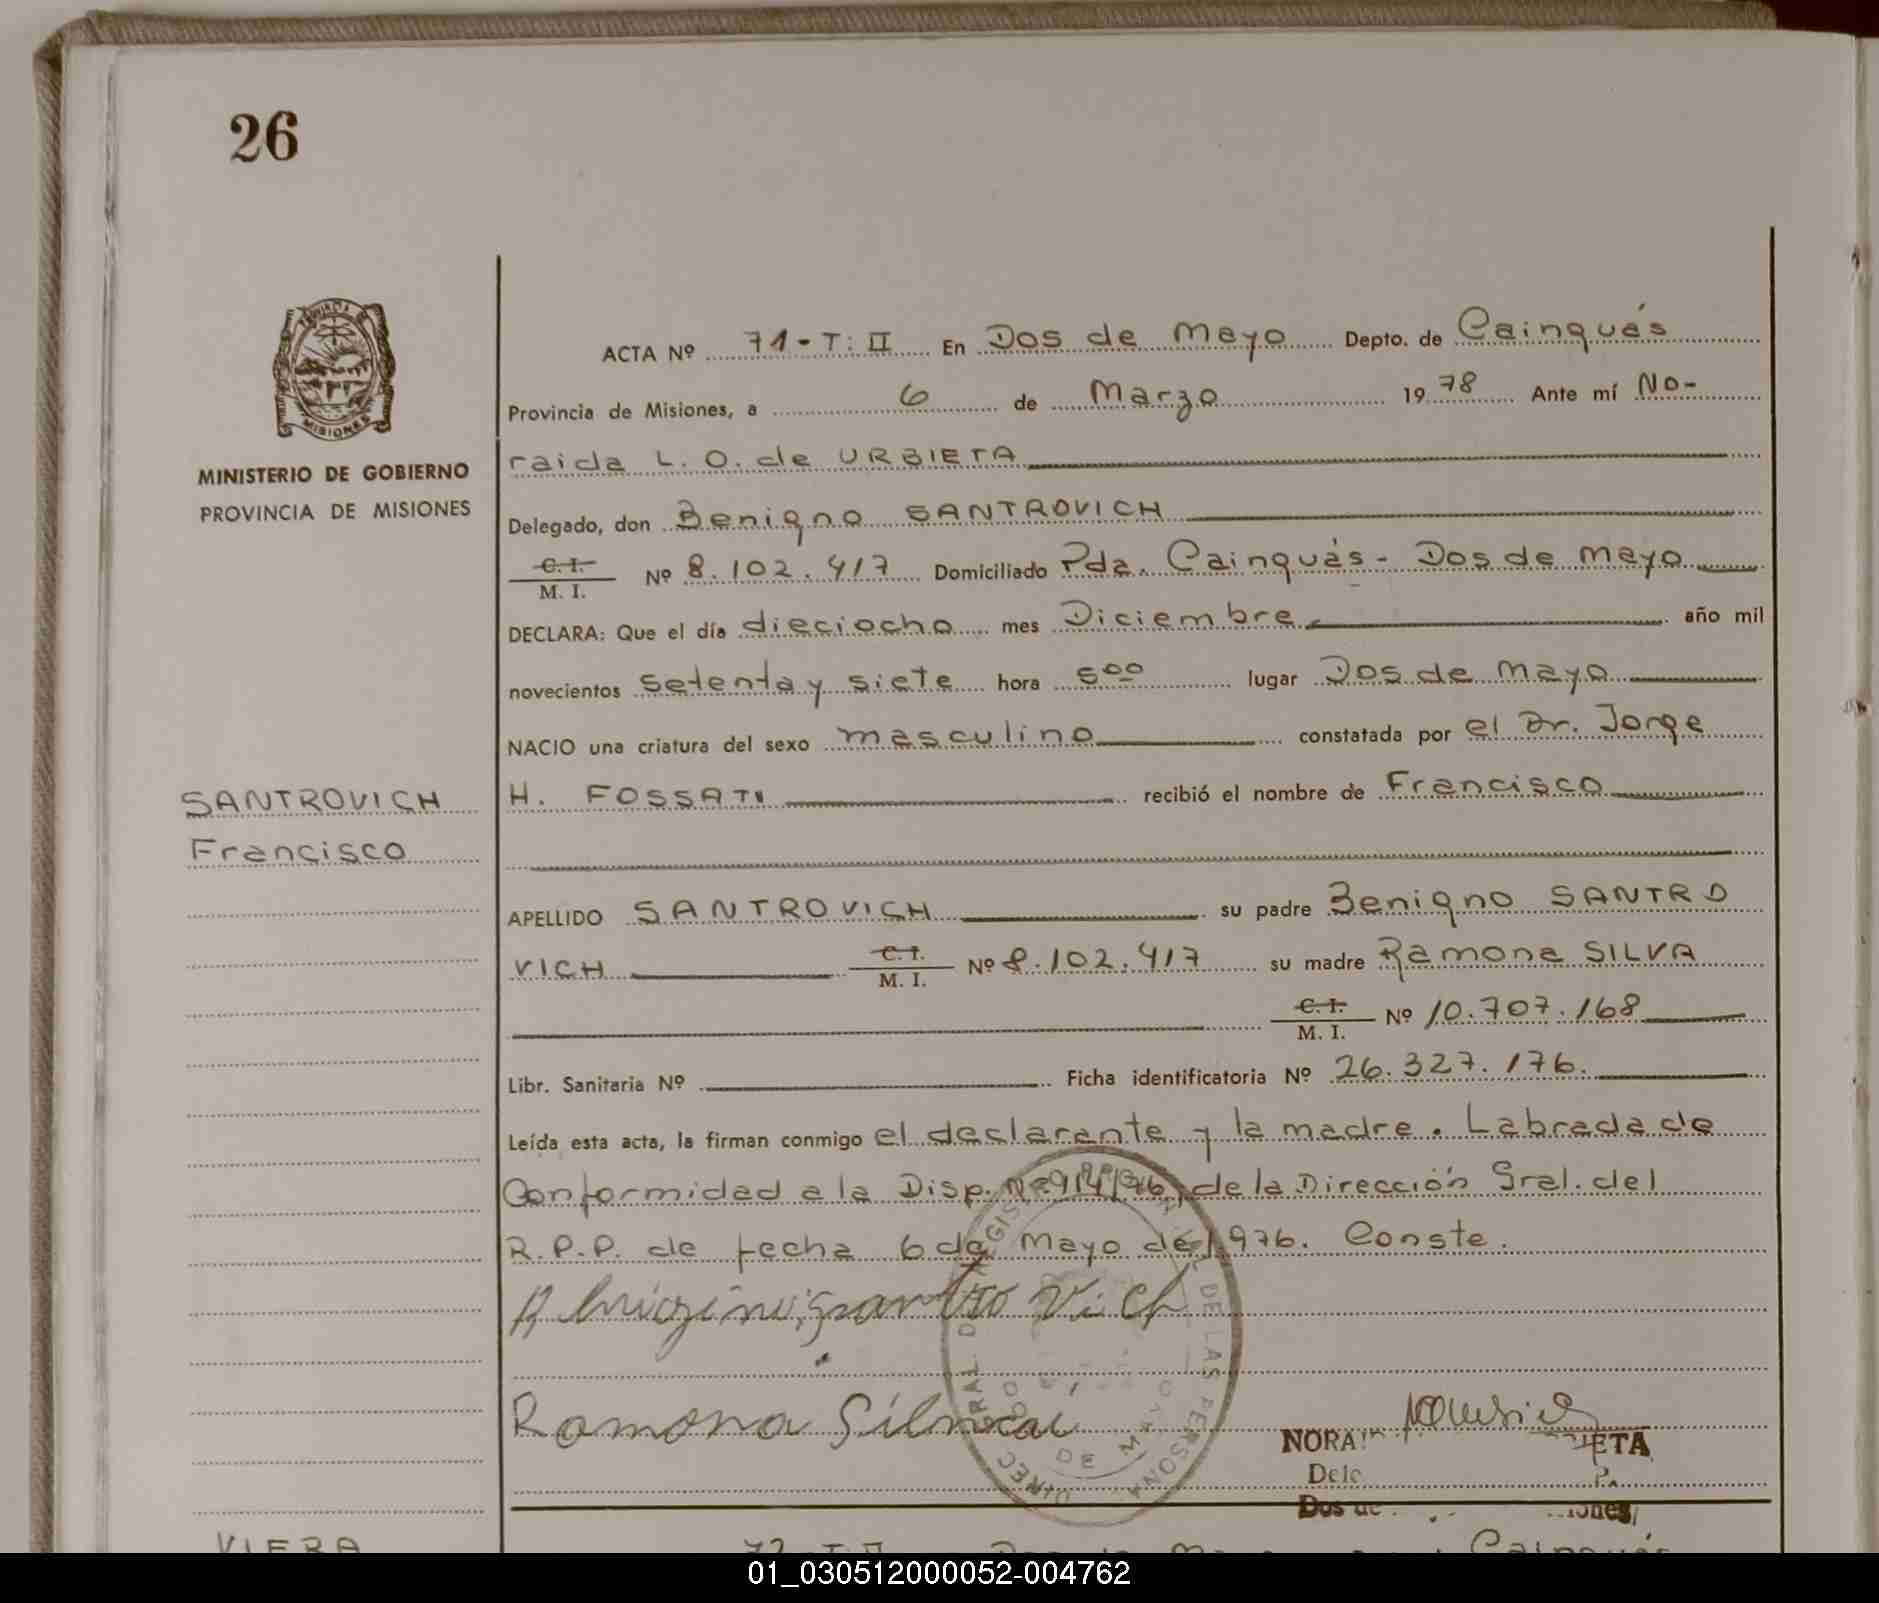 26
ACTA Nº 71-T: II En Dos de Mayo Depto. de Cainguás
Provincia de Misiones, a 6 de Marzo 1978 Ante mí No-
raida L. O. de URBIETA
MINISTERIO DE GOBIERNO
PROVINCIA DE MISIONES
Delegado, don Benigno SANTROVICH
C. I.
M. I. Nº 8.102.417 Domiciliado Pda. Cainguás - Dos de Mayo
DECLARA: Que el día dieciocho mes Diciembre año mil
novecientos setenta y siete hora 5 00 lugar Dos de Mayo
NACIO una criatura del sexo masculino constatada por el Dr. Jorge
SANTROVICH
H. FOSSATI recibió el nombre de Francisco
Francisco
APELLIDO SANTROVICH su padre Benigno SANTRO
VICH C. I. M. I. Nº 8.102.417 su madre Ramona SILVA
C. I. M. I. Nº 10.707.168
Libr. Sanitaria Nº Ficha identificatoria Nº 26.327.176.
Leída esta acta, la firman conmigo el declarante y la madre. Labrada de
Conformidad a la Disp. Nº 914/76, de la Dirección Gral. del
R.P.P. de fecha 6 de Mayo de 1976. Conste.
Ramona Silva
DE LAS PERSONA
DE MAYO
NORA IETA
Dele
Dos de iones
VIERA
72 - T: II Dos de Mayo Cainguás
01_030512000052-004762